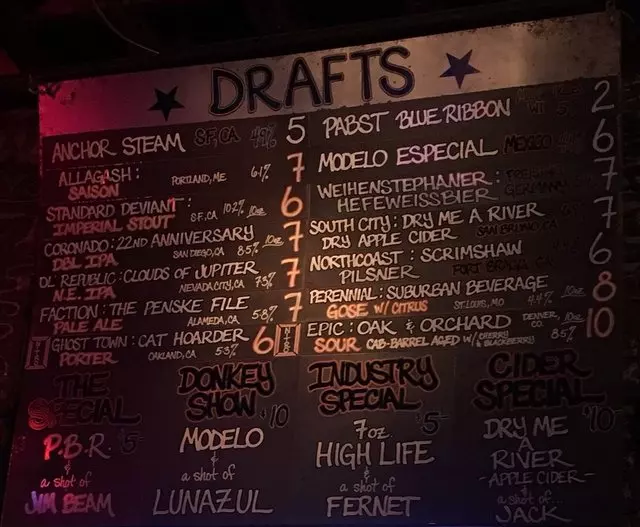 DRAFTS
ANCHOR STEAM SF, CA 4.9% 5
ALLAGASH: PORTLAND, ME 6.1% 7
SAISON
STANDARD DEVIANT: S.F, CA 10.2% 10oz 6
IMPERIAL STOUT
CORONADO: 22ND ANNIVERSARY SAN DIEGO, CA 8.5% 10oz 7
DBL IPA
OL REPUBLIC: CLOUDS OF JUPITER NEVADA CITY, CA 7.3% 7
N.E. IPA
FACTION: THE PENSKE FILE ALAMEDA, CA 5.8% 7
PALE ALE
NITRO GHOST TOWN: CAT HOARDER OAKLAND, CA 5.3% 6
PORTER
PABST BLUE RIBBON 2
MODELO ESPECIAL MEXICO 6
WEIHENSTEPHANER: GERMANY 7
HEFEWEISSBIER
SOUTH CITY: DRY ME A RIVER SAN BRUNO, CA 7
DRY APPLE CIDER
NORTHCOAST: SCRIMSHAW FORT BRAGG, CA 6
PILSNER
PERENNIAL: SUBURBAN BEVERAGE ST. LOUIS, MO 4.4% 10oz 8
GOSE W/ CITRUS
NITRO EPIC: OAK & ORCHARD DENVER, CO. 8.5% 10oz 10
SOUR CAB-BARREL AGED W/ CHERRY & BLACKBERRY
THE $PECIAL
P.B.R 5
&
a shot of
JIM BEAM
DONKEY SHOW $10
MODELO
&
a shot of
LUNAZUL
INDUSTRY SPECIAL $5
7oz
HIGH LIFE
&
a shot of
FERNET
CIDER SPECIAL $10
DRY ME
A
RIVER
-APPLE CIDER-
a shot of...
JACK